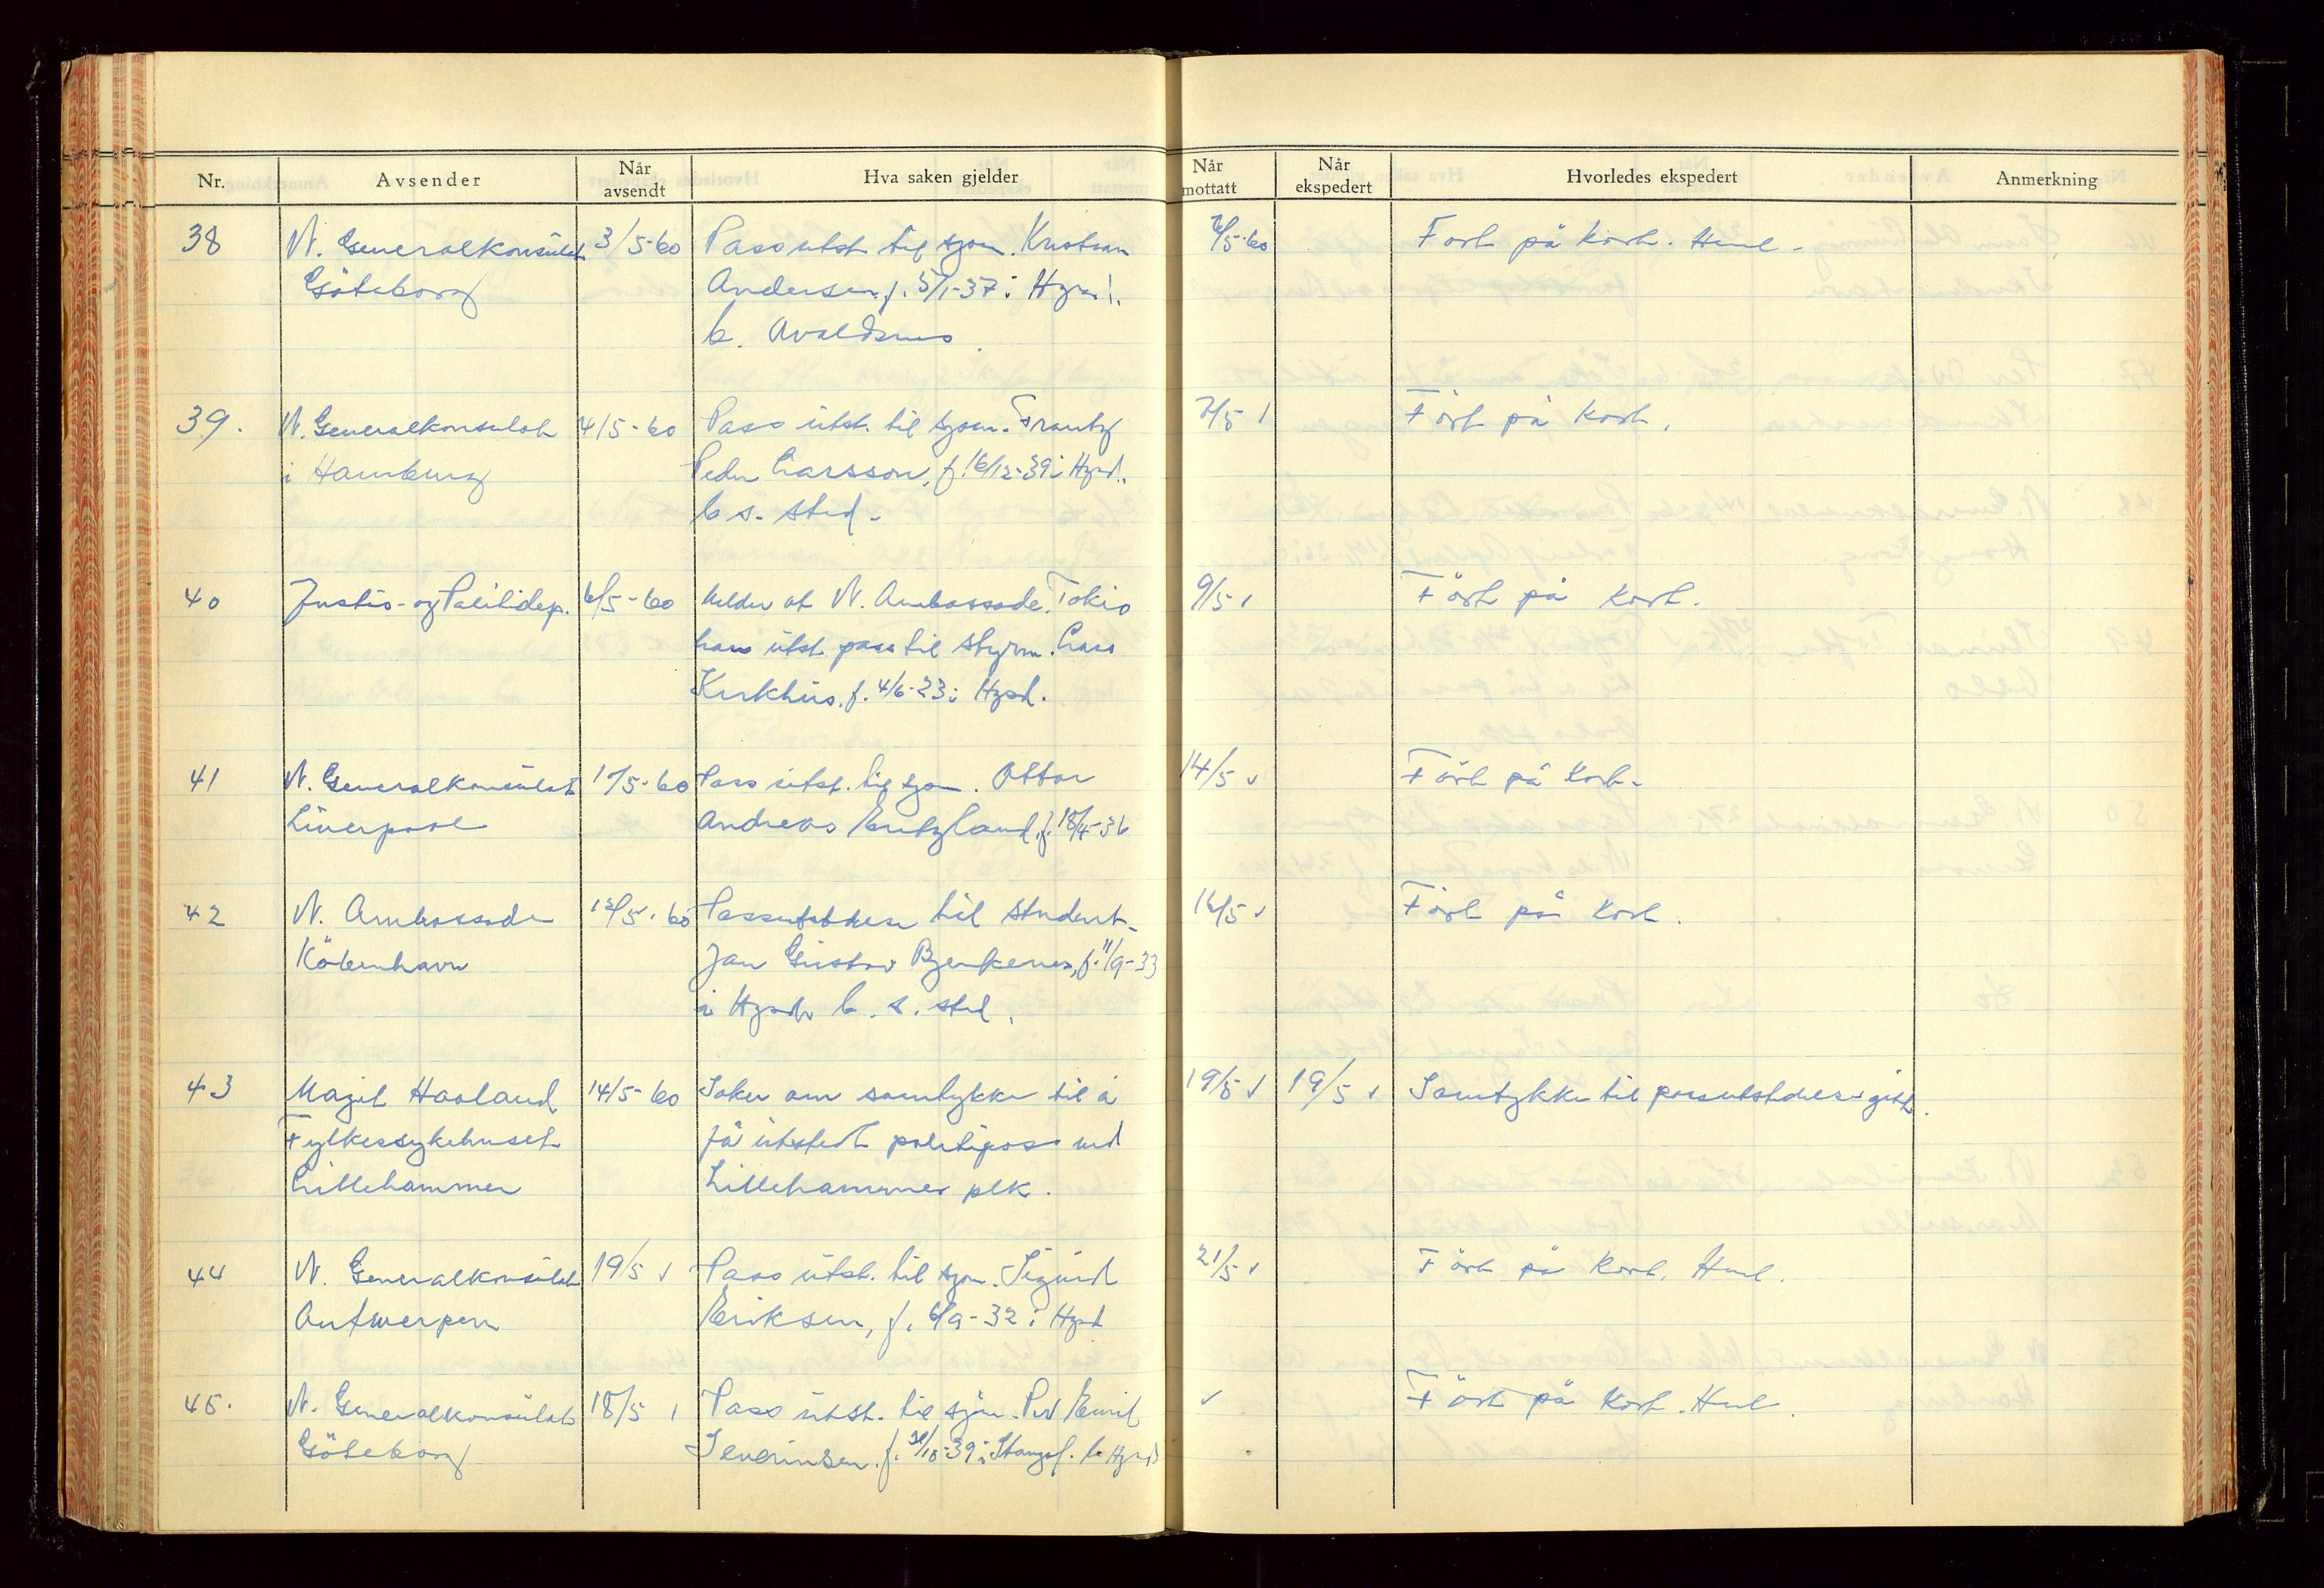 Nr. Avsender Når avsendt Hva saken gjelder Når mottatt Når ekspedert Hvorledes ekspedert Anmerkning
38 N. Generalkonsulat 3/5-60 Pass utst. til sjøm. Kristian 7/5-60 Fört på kort. Hvul.
Göteborg Andersen, f. 5/1-37 i Hgsd.
b. Avaldsnes.
39. N. Generalkonsulat 4/5-60 Pass utst. til sjøm. Frantz 7/5 Fört på kort.
i Hamburg Peder Larsson, f. 16/12-39 i Hgsd.
b s. sted.
40 Justis- og Politidep. 6/5-60 Melder at N. Ambassade, Tokio 9/5 Fört på kort.
har utst. pass til styrm. Lars
Kirkhus, f. 4/6-23 i Hgsd.
41 N. Generalkonsulat /5-60 Pass utst. til sjøm. Ottar 14/5 Fört på kort.
Liverpool Andreas f. 18/4-36
42 N. Ambassade 12/5-60 Passutstedelse til student 16/5 Fört på kort.
Köbenhavn Jan Gustav f. 11/9-33
i Hgsd b. s. sted.
43 Magit Haaland 14/5-60 Søker om samtykke til å 19/5 19/5 Samtykke til passutstedelse gitt.
Fylkessykehuset få utstedt politipass ved
Lillehammer Lillehammer plk.
44 N. Generalkonsulat 19/5 Pass utst. til sjøm. Sigurd 21/5 Fört på kort. Hvul.
Antwerpen Eriksen, f. 6/9-32 i Hgsd
45. N. Generalkonsulat 18/5 Pass utst. til sjøm. Per Emil Fört på kort. Hvul.
Göteborg Severinsen. f. /10-39 i b. Hgsd